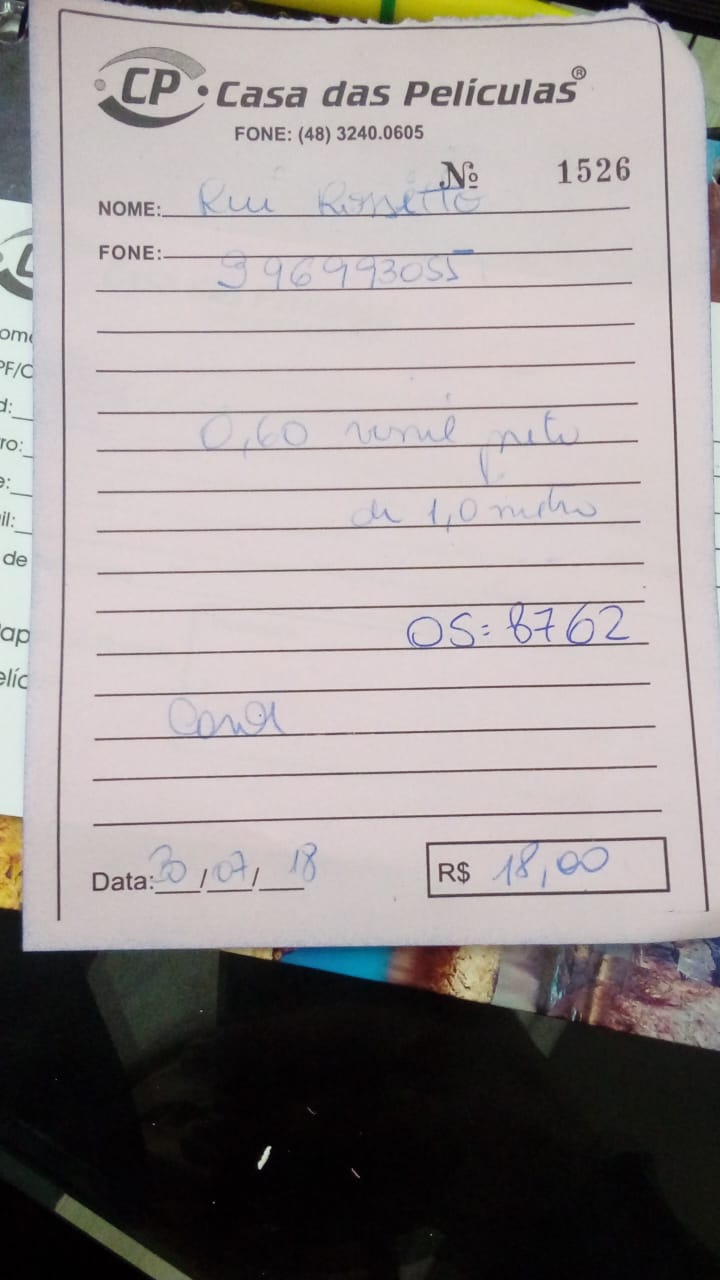 CP • Casa das Películas®
FONE: (48) 3240.0605
Nº 1526
NOME: Rui Rossetto
FONE:
996993055
0,60 vinil preto
de 1,0 metro
OS: 8762
Data: 30/07/18 R$ 18,00
PF/C
ro:
e:
il:
de